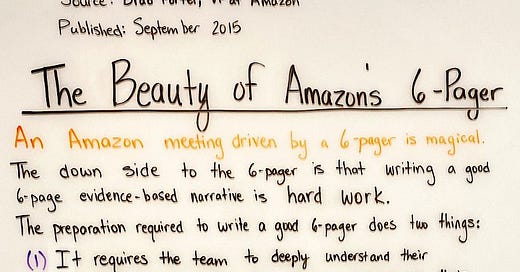 Source: Brad Porter, VP at Amazon
Published: September 2015
The Beauty of Amazon's 6-Pager
An Amazon meeting driven by a 6-pager is magical.
The down side to the 6-pager is that writing a good
6-page evidence-based narrative is hard work.
The preparation required to write a good 6-pager does two things:
(1) It requires the team to deeply understand their